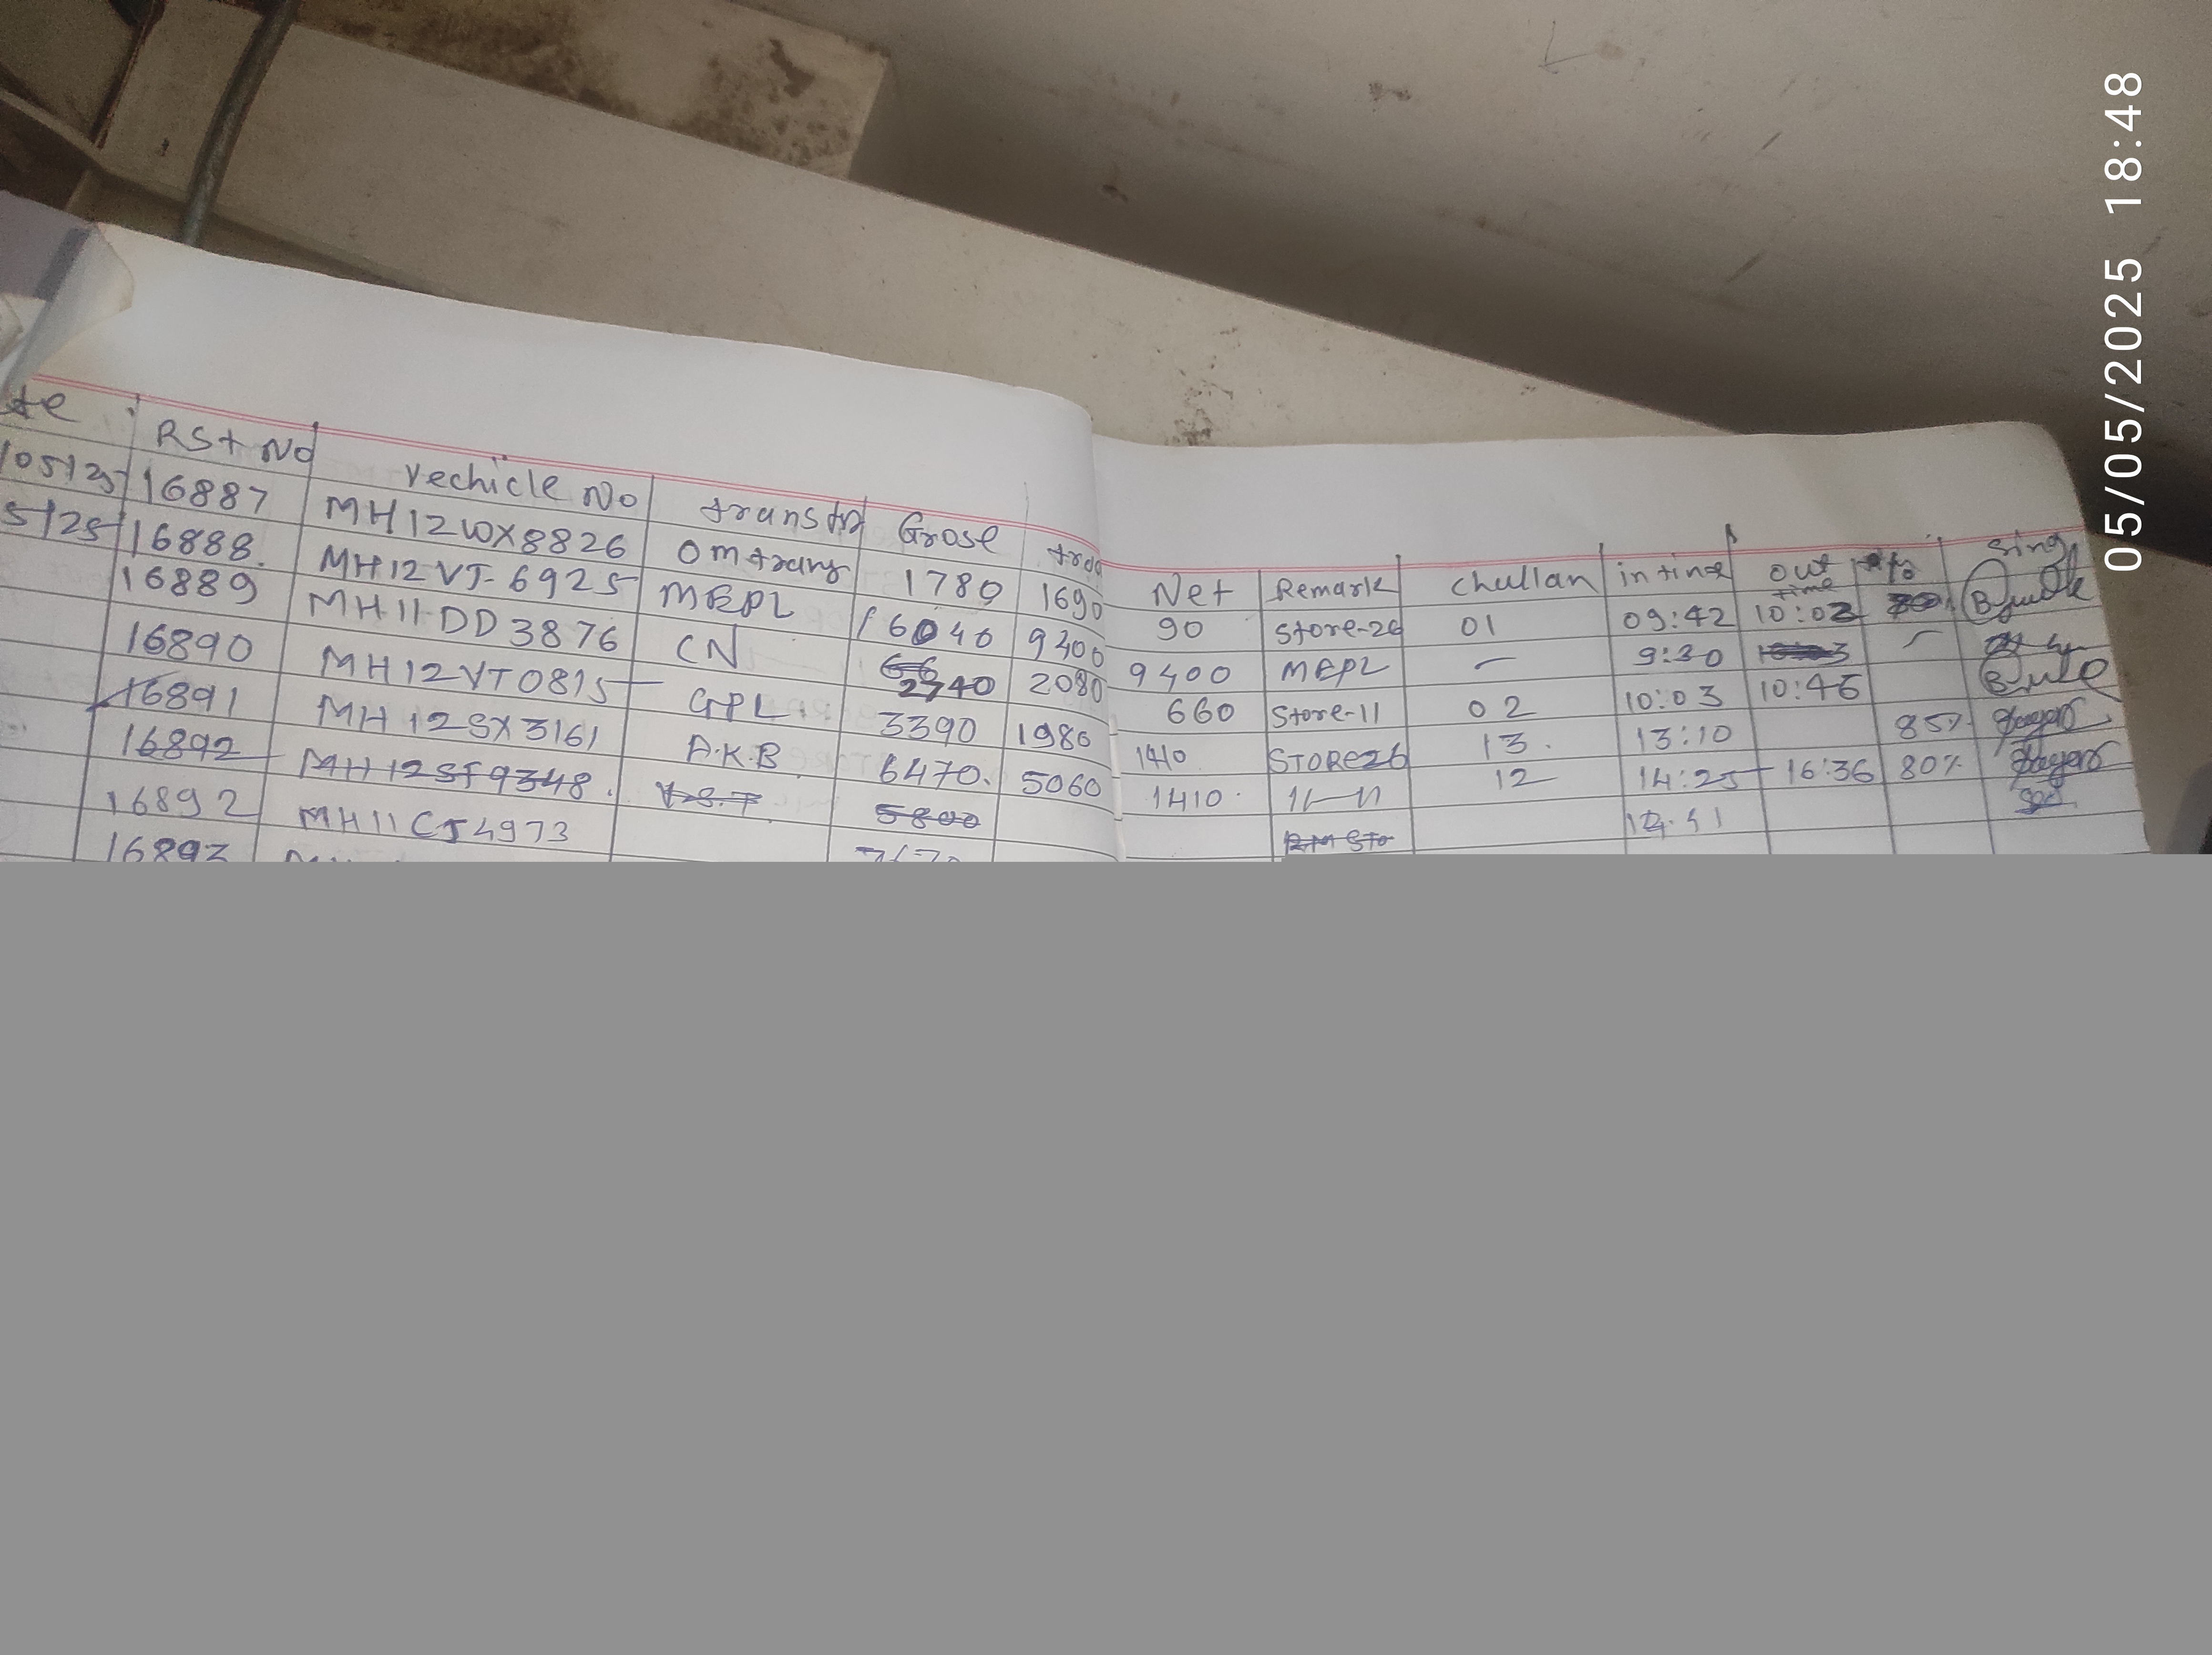 te RSt No Vechicle No Grose Net Remark Challan in time out time sing
05/25 16887 MH12WX8826 1780 1690 90 Store-26 01 09:42 10:02
5/25 16888. MH12VJ-6925 MEPL 16040 9400 9400 MEPL 9:30
16889 MH11DD3876 CN 2740 2080 660 Store-11 02 10:03 10:46
16890 MH12VT0815 GPL 3390 1980 1410 STORE26 13. 13:10 85%
16891 MH12SX3161 A.K.B 6470. 5060 1410. 12 14:25 16:36 80%
16892 MH12SF9348. 5800 RM Sto
16892 MH11CJ4973
16893
05/05/2025 18:48